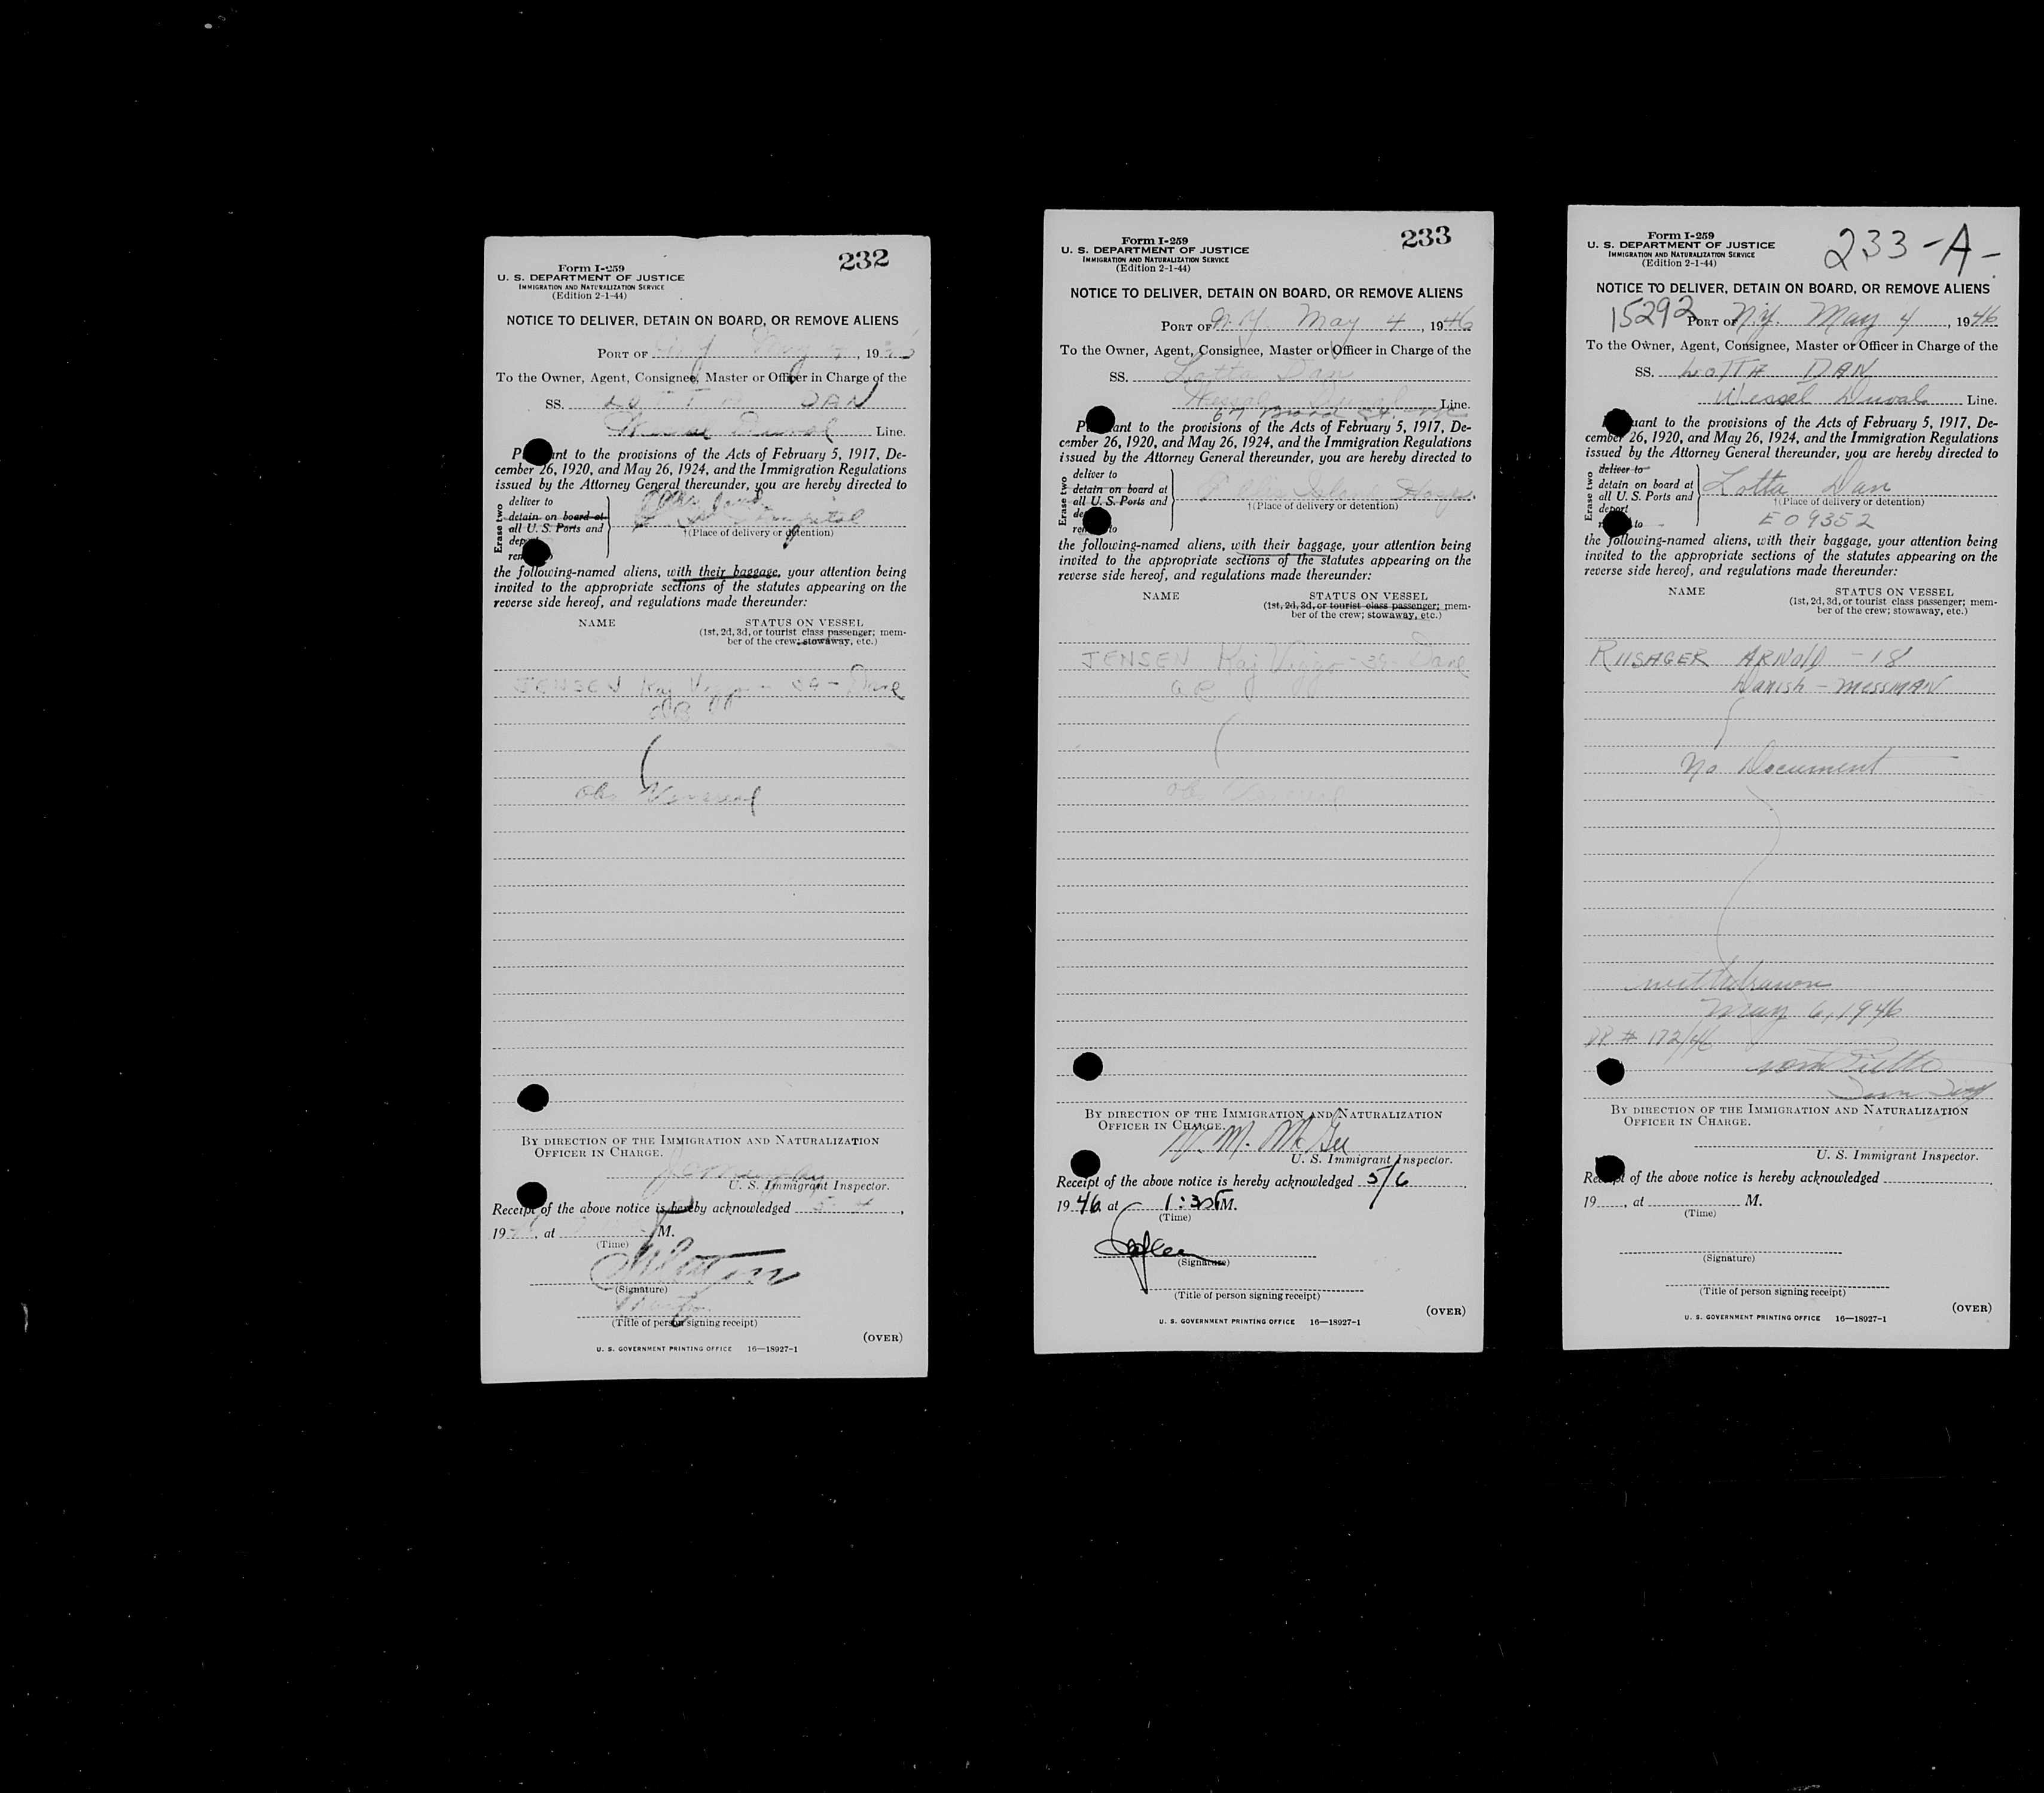 232
Form I-259
U. S. DEPARTMENT OF JUSTICE
IMMIGRATION AND NATURALIZATION SERVICE
(Edition 2-1-44)
NOTICE TO DELIVER, DETAIN ON BOARD, OR REMOVE ALIENS
PORT OF N.Y. May 4, 19
To the Owner, Agent, Consignee, Master or Officer in Charge of the
SS. LOTTA DAN
Duval Line.
P ant to the provisions of the Acts of February 5, 1917, De-
cember 26, 1920, and May 26, 1924, and the Immigration Regulations
issued by the Attorney General thereunder, you are hereby directed to
Erase two
deliver to
detain on board at
all U. S. Ports and
dep
rem
Hospital
†(Place of delivery or detention)
the following-named aliens, with their baggage, your attention being
invited to the appropriate sections of the statutes appearing on the
reverse side hereof, and regulations made thereunder:
NAME STATUS ON VESSEL
(1st, 2d, 3d, or tourist class passenger; mem-
ber of the crew; stowaway, etc.)
JENSEN Kaj Viggo - 39 - Dane
AB
Obs Venereal
BY DIRECTION OF THE IMMIGRATION AND NATURALIZATION
OFFICER IN CHARGE.
U. S. Immigrant Inspector.
Receipt of the above notice is hereby acknowledged 5-4,
19 , at M.
(Time)
(Signature)
(Title of person signing receipt)
(OVER)
U. S. GOVERNMENT PRINTING OFFICE 16—18927-1
233
Form I-259
U. S. DEPARTMENT OF JUSTICE
IMMIGRATION AND NATURALIZATION SERVICE
(Edition 2-1-44)
NOTICE TO DELIVER, DETAIN ON BOARD, OR REMOVE ALIENS
PORT OF N.Y. May 4, 1946
To the Owner, Agent, Consignee, Master or Officer in Charge of the
SS. Lotta Dan
Wessel Duval Line.
67 Broad St. NYC
P ant to the provisions of the Acts of February 5, 1917, De-
cember 26, 1920, and May 26, 1924, and the Immigration Regulations
issued by the Attorney General thereunder, you are hereby directed to
Erase two
deliver to
detain on board at
all U. S. Ports and
de
re to
Ellis Island Hosp.
†(Place of delivery or detention)
the following-named aliens, with their baggage, your attention being
invited to the appropriate sections of the statutes appearing on the
reverse side hereof, and regulations made thereunder:
NAME STATUS ON VESSEL
(1st, 2d, 3d, or tourist class passenger; mem-
ber of the crew; stowaway, etc.)
JENSEN Kaj Viggo - 39 - Dane
AB
Obs Venereal
BY DIRECTION OF THE IMMIGRATION AND NATURALIZATION
OFFICER IN CHARGE.
M. McGee
U. S. Immigrant Inspector.
Receipt of the above notice is hereby acknowledged 5/6,
1946, at 1:30 P M.
(Time)
(Signature)
(Title of person signing receipt)
(OVER)
U. S. GOVERNMENT PRINTING OFFICE 16—18927-1
233-A-
Form I-259
U. S. DEPARTMENT OF JUSTICE
IMMIGRATION AND NATURALIZATION SERVICE
(Edition 2-1-44)
NOTICE TO DELIVER, DETAIN ON BOARD, OR REMOVE ALIENS
15292 PORT OF N.Y. May 4, 1946
To the Owner, Agent, Consignee, Master or Officer in Charge of the
SS. LOTTA DAN
Wessel Duval Line.
uant to the provisions of the Acts of February 5, 1917, De-
cember 26, 1920, and May 26, 1924, and the Immigration Regulations
issued by the Attorney General thereunder, you are hereby directed to
Erase two
deliver to
detain on board at
all U. S. Ports and
deport
to
Lotta Dan
†(Place of delivery or detention)
E09352
the following-named aliens, with their baggage, your attention being
invited to the appropriate sections of the statutes appearing on the
reverse side hereof, and regulations made thereunder:
NAME STATUS ON VESSEL
(1st, 2d, 3d, or tourist class passenger; mem-
ber of the crew; stowaway, etc.)
RIISAGER ARNOLD - 18
Danish - MESSMAN
No Document
withdrawn
May 6, 1946
# 172/46
BY DIRECTION OF THE IMMIGRATION AND NATURALIZATION
OFFICER IN CHARGE.
U. S. Immigrant Inspector.
Receipt of the above notice is hereby acknowledged
19 , at M.
(Time)
(Signature)
(Title of person signing receipt)
(OVER)
U. S. GOVERNMENT PRINTING OFFICE 16—18927-1